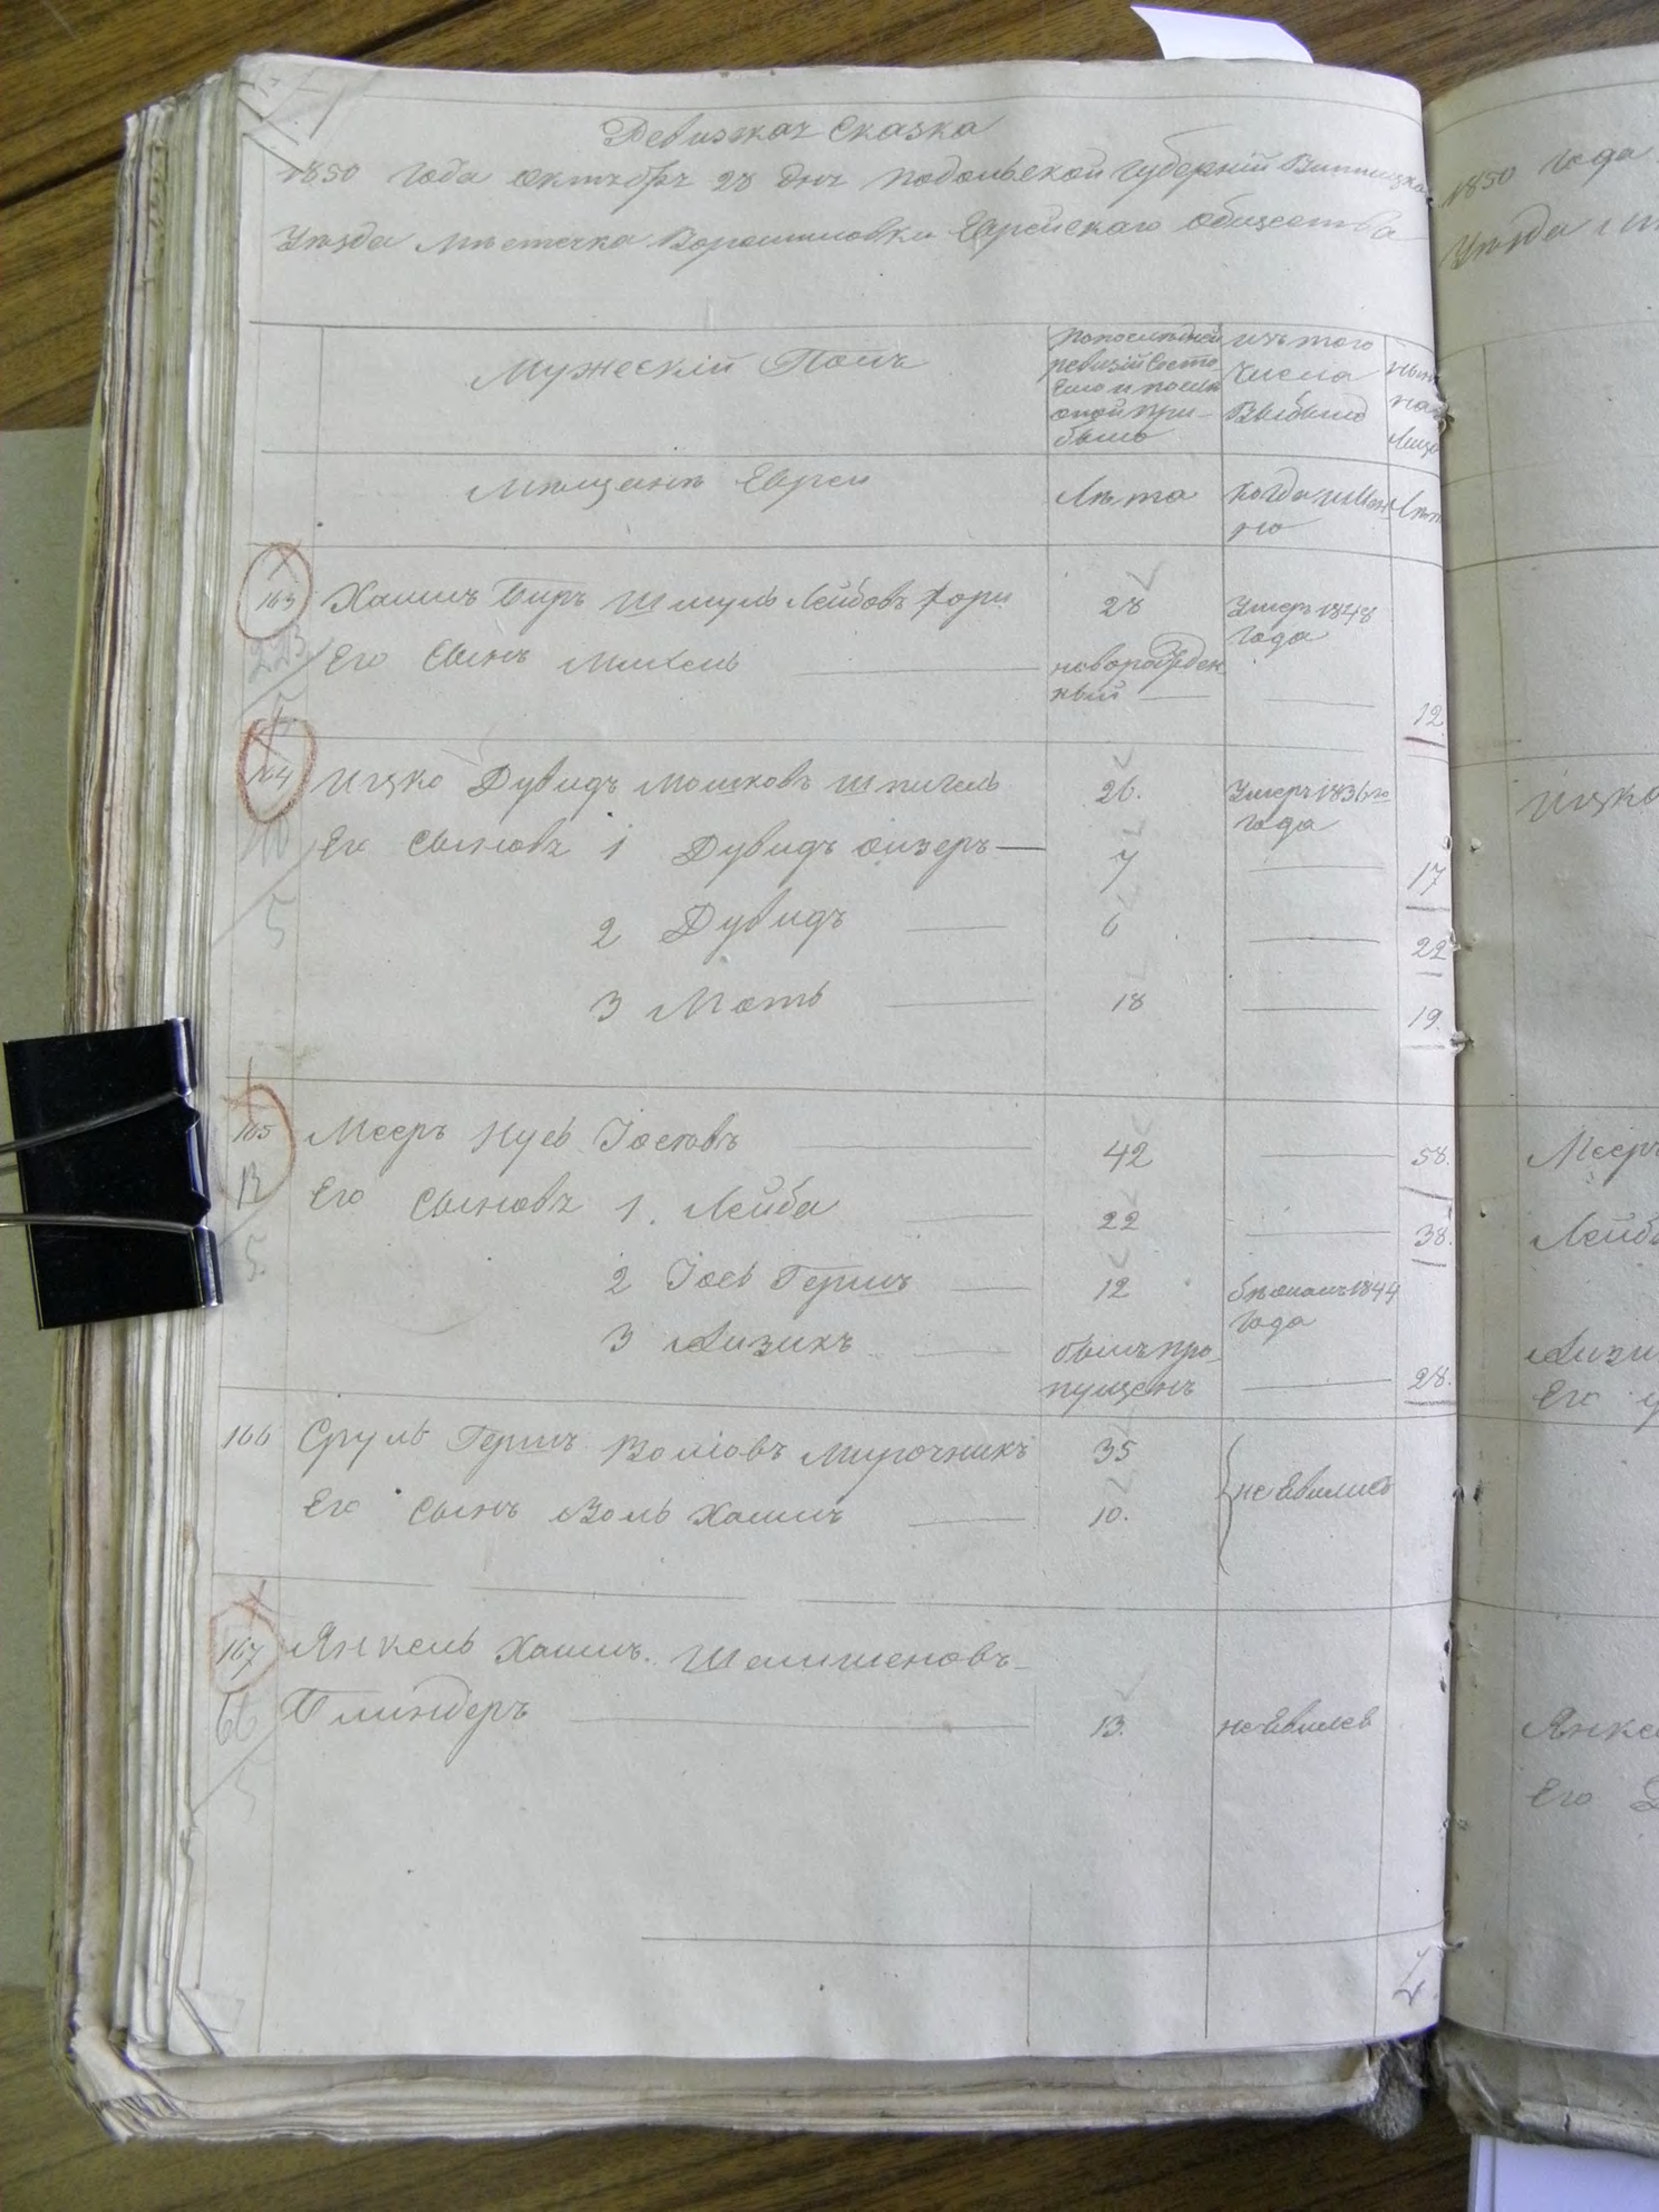 Ревизская Сказка
1850 года октября 28 дня Подольской Губерніи Винницка
Уѣзда Мѣстечка Ворошиловки Еврейскаго общества
Мужескій Полъ
По послѣдней ревизіи состояло и послѣ оной прибыло
изъ того числа выбыло
Мѣщанѣ Евреи
Лѣта
когда именно
Лѣт
163 Хаимъ Биръ Шмуль Лейбовъ 28 Умеръ 1848 года
Его Сынъ Михель новорожденный 12
164 Ицко Дувидъ Мошковъ Шпигель 26. Умеръ 1836го года
Его Сыновя 1 Дувидъ Ойзеръ 7 17
2 Дувидъ 6 22
3 Моть 18 19.
165 Мееръ Нусь Іосіовъ 42 58.
12
Его Сыновя 1. Лейба 22 38.
5.
2 Іось Гершъ 12 бѣжалъ 1844 года
3 Аизикъ былъ пропущенъ 28.
166 Сруль Гершъ Воліовъ Мирочникъ 35
не явились
Его Сынъ Воль Хаимъ 10.
167 Янкель Хаимъ Шлиоменовъ
66 Блиндеръ 13. не явился
5
1850 года
Уѣзда
Ицко
Мееръ
Лейб
Аизи
Его
Янке
Его